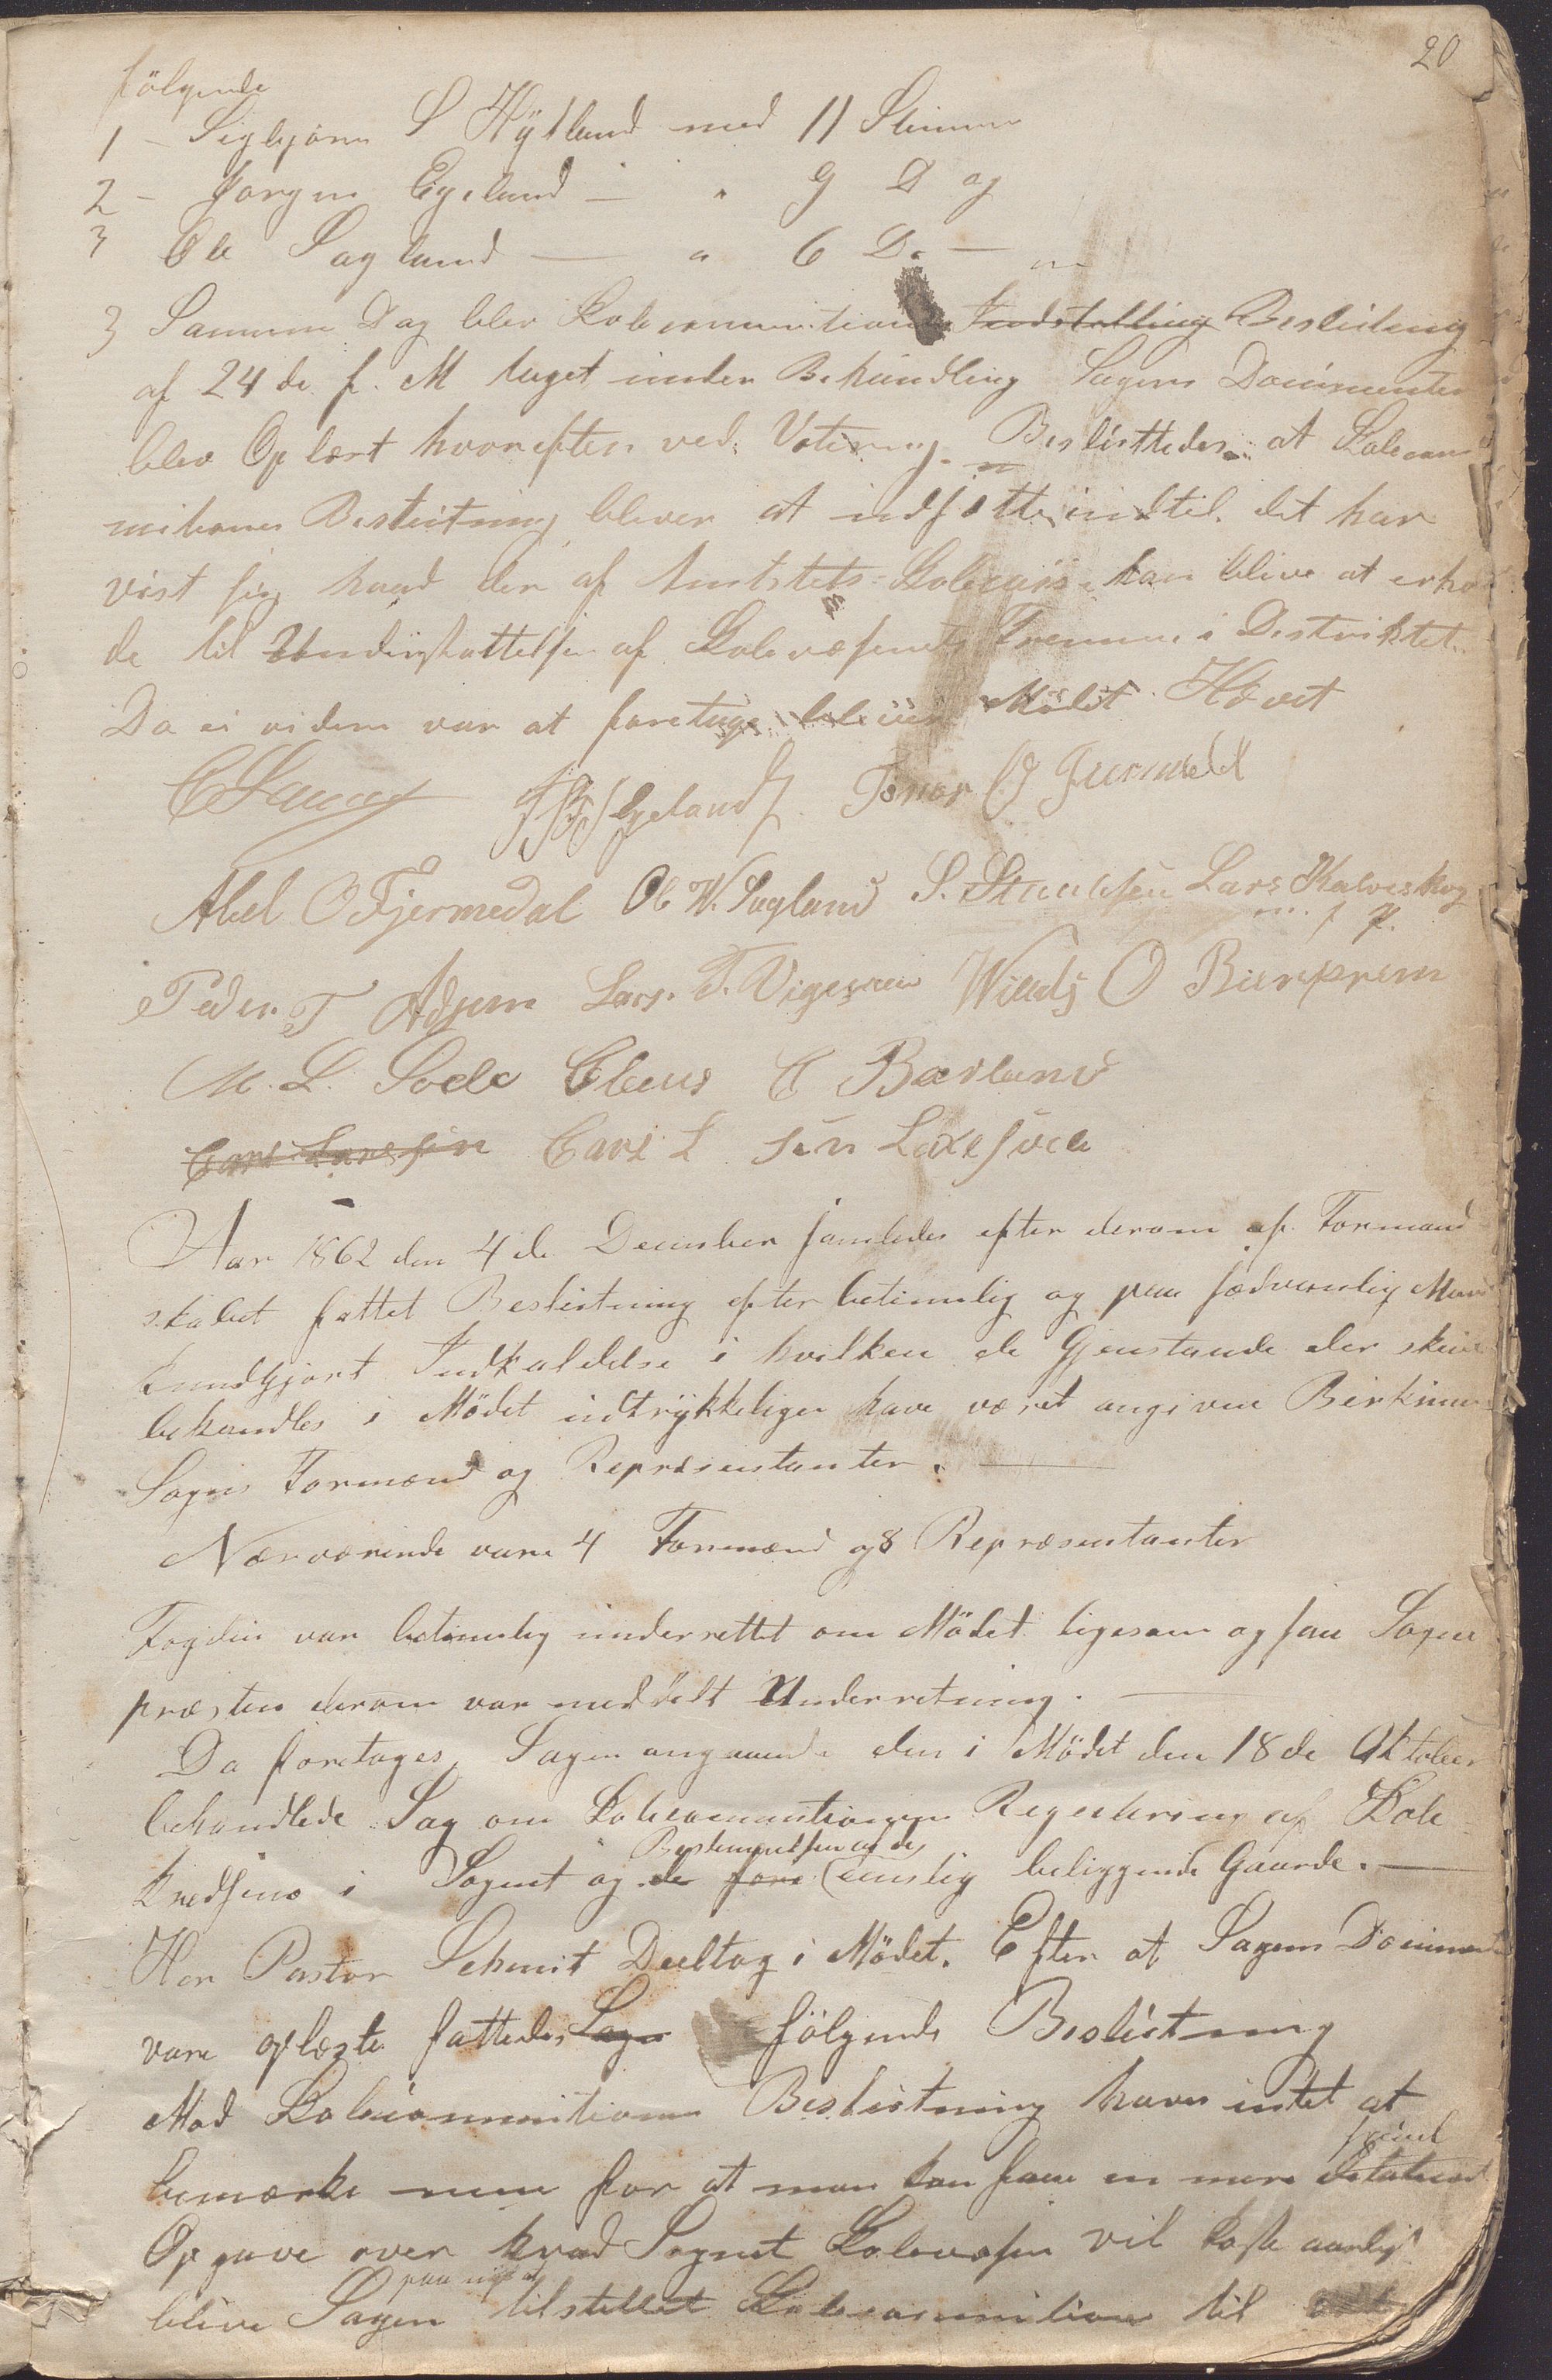 20
följende
1 - Sigbjörn S Hÿtland med 11 Stimmer
2 - Jörgen Egeland — " 9 D og
3 Ole Sagland — " 6 Do —
3 Samme Dag blev Skolecommitionens Indstelling Beslutning
af 24de f. M taget under Behandling Sagens Documenter
blev Oplæst hvorefter ved Votering Besluttedes at Skolecom
mitionens Beslutning bliver at udsættes indtil det har
vist sig hvad der af Amtstets Skolecasse kan blive at erhol
de til Understøttelse af Skolevæsenets Fremme i Distriktet.
Da ei videre var at foretage blev Mödet Hævet
Egeland Tønnes O
Abel O Fjermedal Ole W. Sagland S. Lars Kalveskog
m. f. P.
Peder T Lars T. Vigesnes Willads O Bierkrem
M. L. Svele Claus C Barland
Carl Larssen Carl L sen Laxesvele
Aar 1862 den 4de December samledes efter derom af Formand
skabet fattet Beslutning efter betimelig og paa sædvanlig Maade
kundgjort Indkaldelse i hvilken de Gjenstande der skulle
behandles i Mödet udtrÿkkeligen have været angivne Birkrims
Sogns Formænd og Repræsentanter. —
Nærværende vare 4 Formænd og 8 Repræsentanter
Fogden var betimelig underrettet om Mödet ligesom ogsaa Sogne
præsten derom var meddelt Underretning. —
Da foretoges Sagen angaaende den i Mödet den 18de Oktober
behandlede Sag om Skolecommitionens Regulering af Skole
Bestemmelsen af de
kredsene i Sognet og de eenslig beliggende Gaarde. —
Her Pastor Schmit Deeltog i Mödet. Efter at Sagens Document
vare oplæste fattedes Sagen fölgende Beslutning
Mod Skolecommitionens Beslutning haves intet at
bemærke men for at man kan faae en mere detaleret
Opgave over hvad Sognets Skolevæsen vil koste aarligt
paa nÿt
blive Sagen tilstillet Skolecommition til